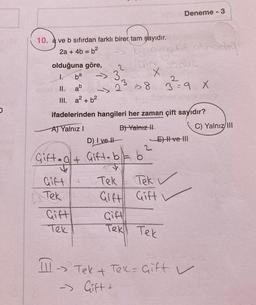 Deneme - 3
10. a ve b sıfırdan farklı birer tam sayıdır.
2a + 4b = b²
olduğuna göre,
I. bᵃ → 3² X
II. aᵇ → 2³ → 8 3² = 9 X
III. a² + b²
ifadelerinden hangileri her zaman çift sayıdır?
A) Yalnız I B) Yalnız II C) Yalnız III
D) I ve II E) II ve III
Çift • a + Çift • b = b²
Çift Tek Tek ✓
Tek Çift Çift ✓
Çift Çift
Tek Tek Tek
III → Tek + Tek = Çift ✓
→ Çift +